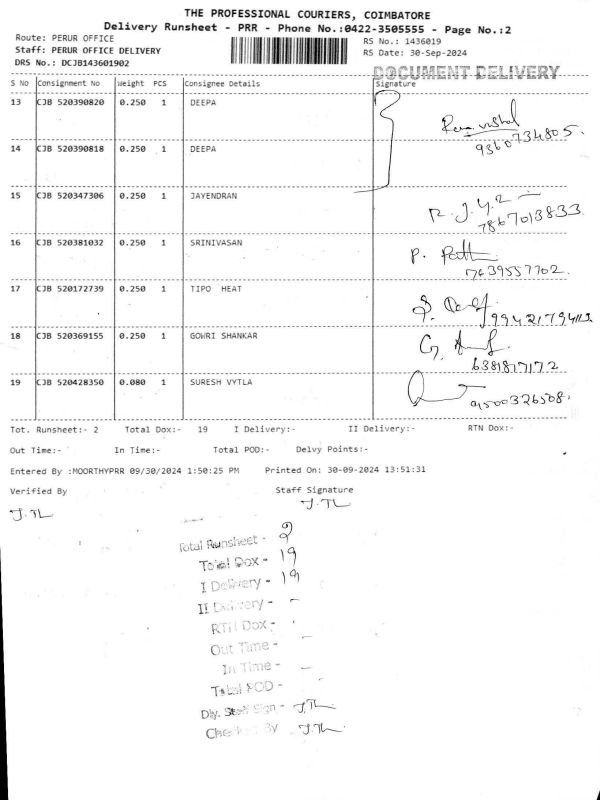 THE PROFESSIONAL COURIERS, COIMBATORE
Delivery Runsheet - PRR - Phone No.:0422-3505555 - Page No.:2
Route: PERUR OFFICE
RS No.: 1436019
Staff: PERUR OFFICE DELIVERY
RS Date: 30-Sep-2024
DRS No.: DCJB143601902
DOCUMENT DELIVERY
S No Consignment No Weight PCS Consignee Details Signature
13 CJB 520390820 0.250 1 DEEPA
9360734805.
14 CJB 520390818 0.250 1 DEEPA
15 CJB 520347306 0.250 1 JAYENDRAN
7867013833
16 CJB 520381032 0.250 1 SRINIVASAN
P.
7639557702.
17 CJB 520172739 0.250 1 TIPO HEAT
18 CJB 520369155 0.250 1 GOWRI SHANKAR
6381817172
19 CJB 520428350 0.080 1 SURESH VYTLA
9500326508.
Tot. Runsheet:- 2 Total Dox:- 19 I Delivery:- II Delivery:- RTN Dox:-
Out Time:- In Time:- Total POD:- Delvy Points:-
Entered By :MOORTHYPRR 09/30/2024 1:50:25 PM Printed On: 30-09-2024 13:51:31
Verified By Staff Signature
Total Runsheet - 2
Total Dox - 19
I Delivery - 19
II Delivery - -
RTN Dox - -
Out Time - -
In Time - -
Total POD - -
Dly. Staff Sign -
Checked By